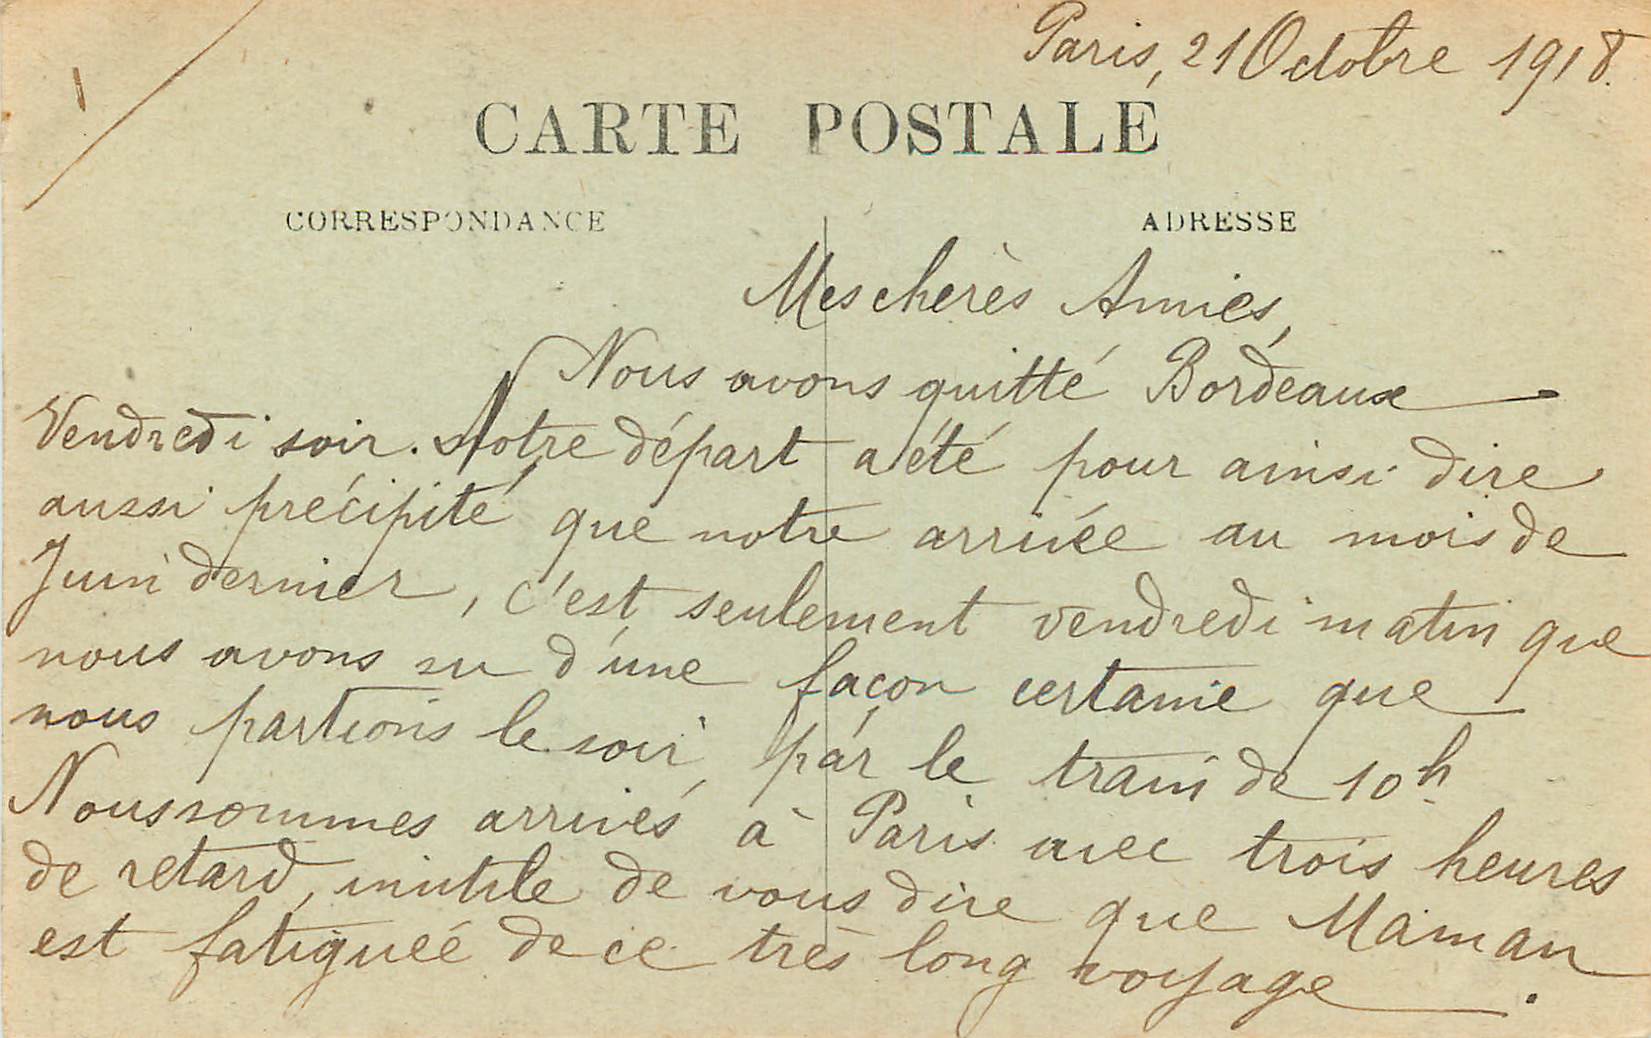 1
Paris, 21 Octobre 1918.
CARTE POSTALE
CORRESPONDANCE
ADRESSE
Mes chères Amies,
Nous avons quitté Bordeaux
Vendredi soir. Notre départ a été pour ainsi dire
aussi précipité que notre arrivée au mois de
Juin dernier, c'est seulement vendredi matin que
nous avons su d'une façon certaine que
nous partions le soir, par le train de 10h.
Nous sommes arrivés à Paris avec trois heures
de retard, inutile de vous dire que Maman
est fatiguée de ce très long voyage.